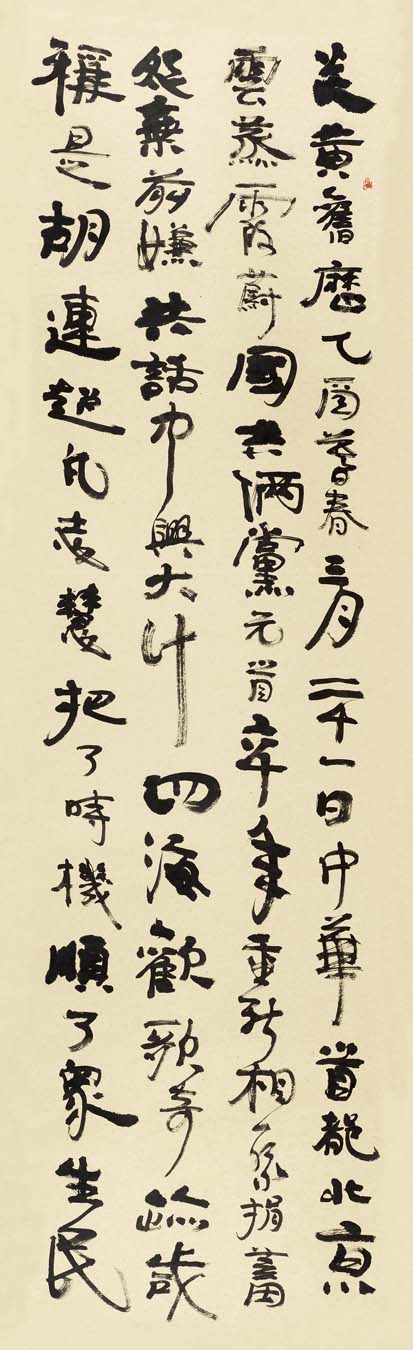 炎黃舊厯乙酉暮春三月二十一日中華首都北京
雲蒸霞蔚國共倆黨元首六十年重新相聚捐蓄
怨棄前嫌共話中興大計四海歡歌奇跡
稱是胡連超凡慧把了時機順了眾生民